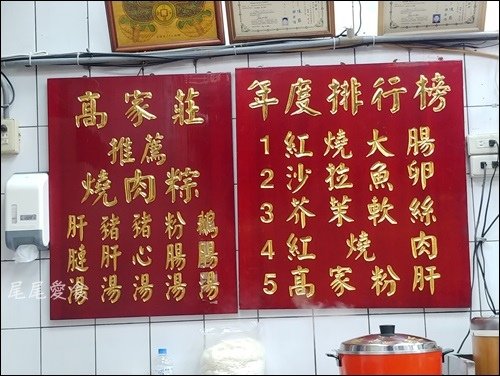 高家莊
推薦
燒肉粽
鵝腸湯
粉腸湯
豬心湯
豬肝湯
肝腱湯
年度排行榜
1 紅燒大腸
2 沙拉魚卵
3 芥茉軟絲
4 紅燒肉
5 高家粉肝
尾尾愛